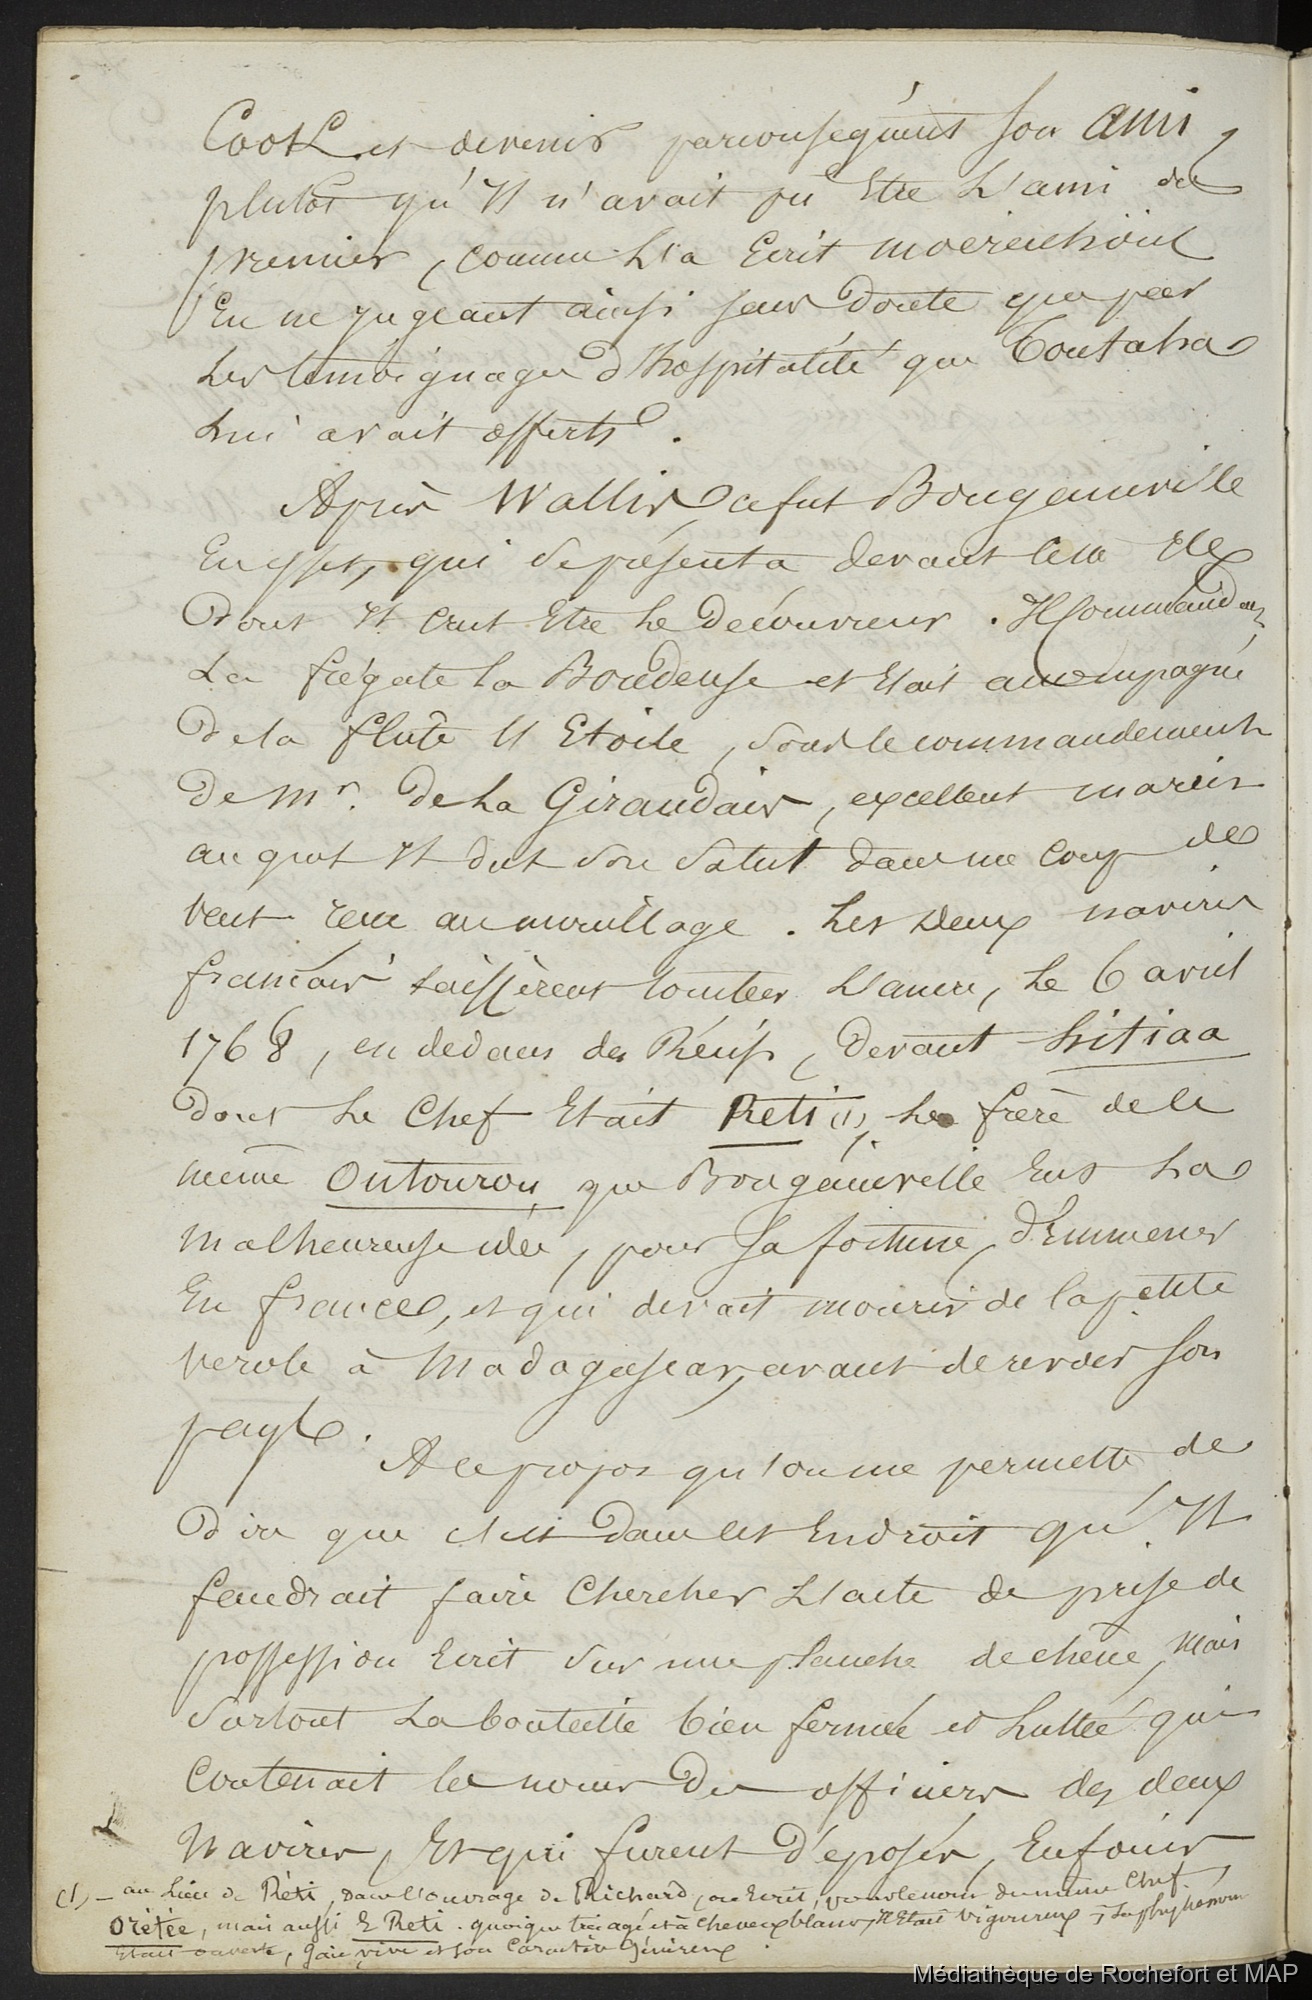 Cook et devenir parconséquent son ami
plutôt qu'Il n'avait pu Etre L'ami du
premier, comme L'a Ecrit Moerenhoüt
En ne jugeant ainsi sans doute que par
Les témoignages d'hospitalité que Toutaha
Lui avait offerts.
Après Wallis, ce fut Bougainville
En effet, qui se présenta devant cette Ile
dont Il crut Etre Le Découvreur. Il Commandait
La frégate la Boudeuse et Etait accompagné
De la flute L'Etoile, sous le commandement
De Mr. De La Giraudais, excellent marin
auquel Il dut son salut dans un coup de
vent reçu au mouillage. Les deux navires
français laissèrent tomber L'ancre, Le 6 avril
1768, en dedans des Récifs, Devant Hitiaa
dont Le Chef Etait Reti (1), Le frère de ce
même Outourou que Bougainville Eut La
malheureuse idée, pour sa fortune, d'Emmener
En france, et qui devait mourir de la petite
verole à Madagascar, avant de revoir son
pays.
A ce propos qu'on me permette de
Dire que c'est dans cet Endroit qu'Il
faudrait faire Chercher L'acte de prise de
possession Ecrit sur une planche de chêne, mais
surtout La bouteille bien fermée et Luttée qui
Contenait les noms Des officiers des deux
Navires, Et qui furent déposés, Enfouis
(1) - au Lieu de Réti, Dans l'ouvrage de Richard, on Ecrit, pour le nom du même Chef.
Orétée, mais aussi E Reti. quoique très agé et à cheveux blancs, Il Etait vigoureux, Sa physionomie
Etait ouverte, gaie, vive et son Caractère généreux.
Médiathèque de Rochefort et MAP